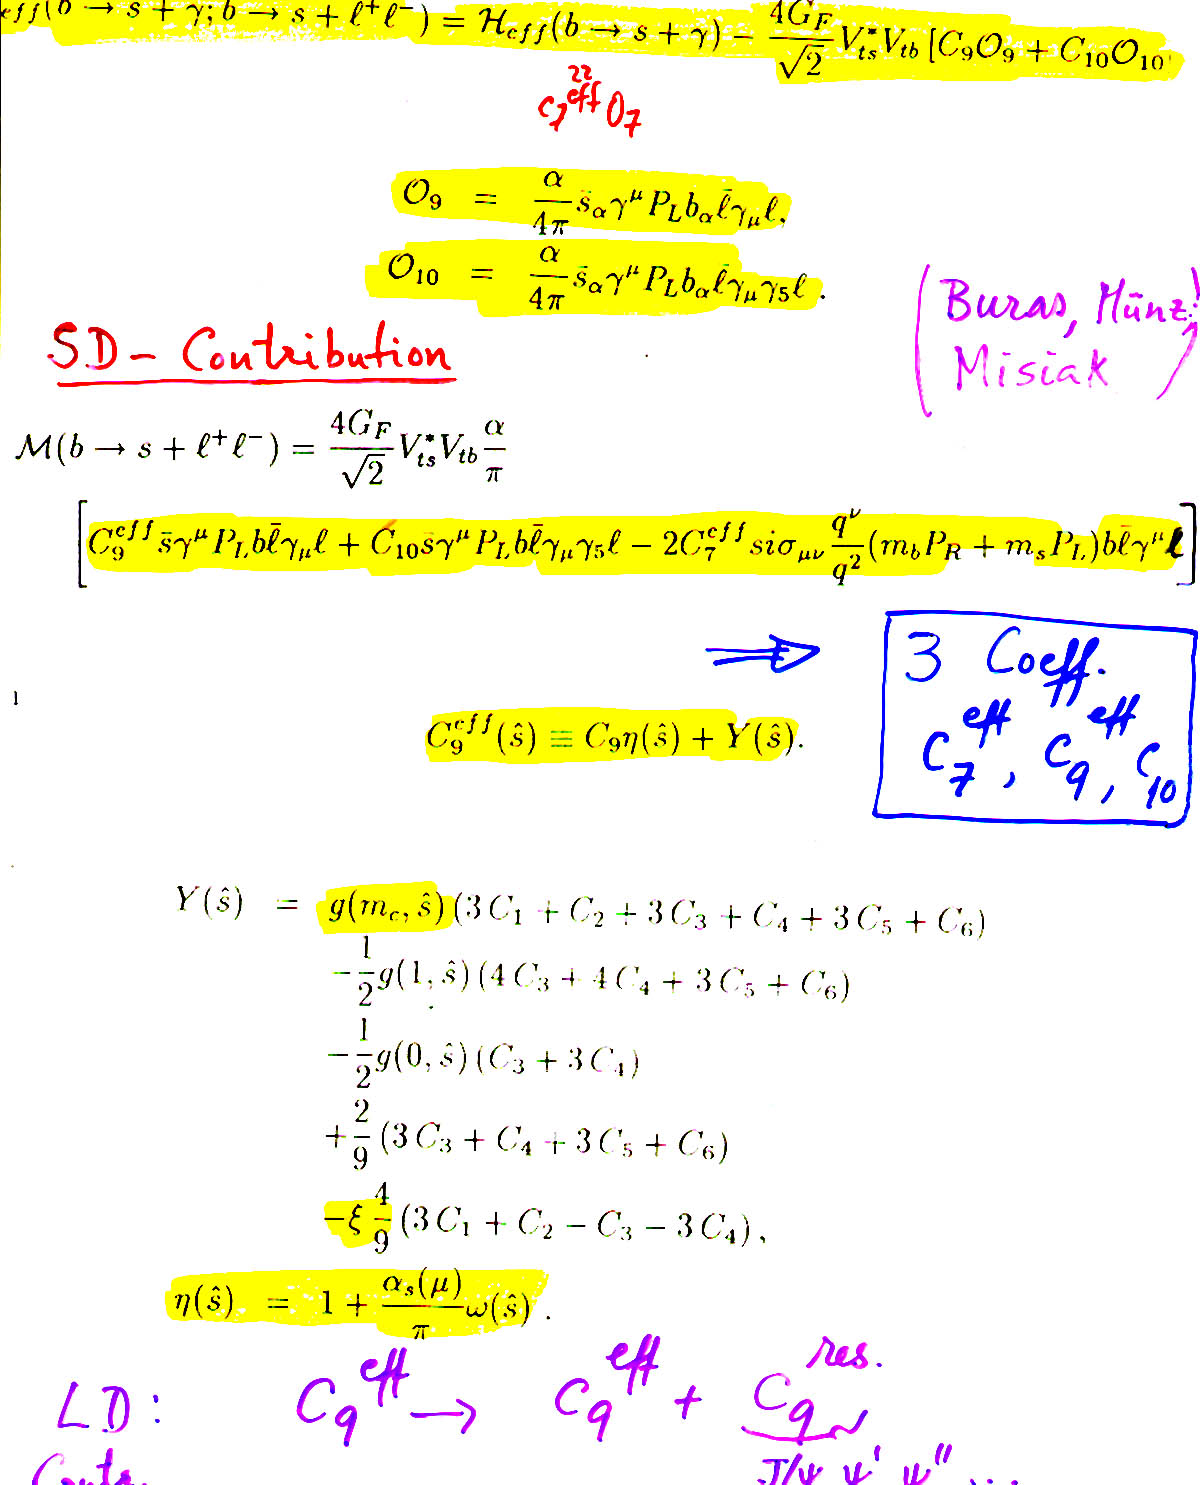 eff(b → s + γ; b → s + ℓ⁺ℓ⁻) = ℋ_eff(b → s + γ) − 4G_F/√2 V*_ts V_tb [C₉𝒪₉ + C₁₀𝒪₁₀
C₇^eff O₇
𝒪₉ = α/4π s̄_α γ^μ P_L b_α ℓ̄γ_μ ℓ,
𝒪₁₀ = α/4π s̄_α γ^μ P_L b_α ℓ̄γ_μ γ₅ ℓ .
(Buras, Münz,
Misiak)
SD - Contribution
ℳ(b → s + ℓ⁺ℓ⁻) = 4G_F/√2 V*_ts V_tb α/π
[C₉^eff s̄γ^μ P_L b ℓ̄γ_μ ℓ + C₁₀ s̄γ^μ P_L b ℓ̄γ_μ γ₅ ℓ − 2C₇^eff siσ_μν q^ν/q² (m_b P_R + m_s P_L) b ℓ̄γ^μ ℓ]
⇒ 3 Coeff.
C₇^eff, C₉^eff, C₁₀
1
C₉^eff(ŝ) ≡ C₉η(ŝ) + Y(ŝ).
Y(ŝ) = g(m_c, ŝ)(3 C₁ + C₂ + 3 C₃ + C₄ + 3 C₅ + C₆)
−1/2 g(1, ŝ)(4 C₃ + 4 C₄ + 3 C₅ + C₆)
−1/2 g(0, ŝ)(C₃ + 3 C₄)
+2/9 (3 C₃ + C₄ + 3 C₅ + C₆)
−ξ 4/9 (3 C₁ + C₂ − C₃ − 3 C₄),
η(ŝ) = 1 + α_s(μ)/π ω(ŝ) .
LD: C₉^eff → C₉^eff + C₉^res.
Contr. J/ψ ψ' ψ'' ...